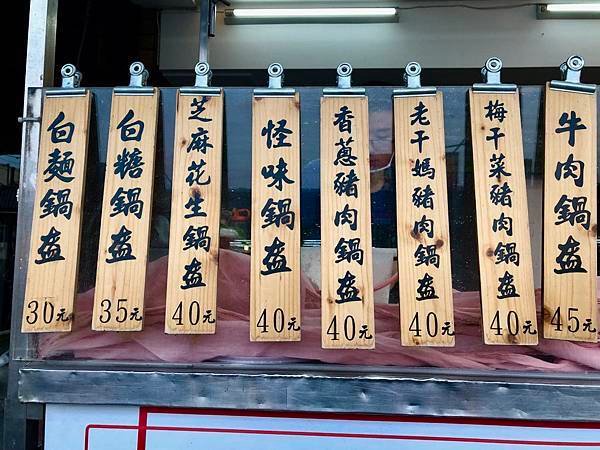 白麵鍋盔
30元
白糖鍋盔
35元
芝麻花生鍋盔
40元
怪味鍋盔
40元
香蔥豬肉鍋盔
40元
老干媽豬肉鍋盔
40元
梅干菜豬肉鍋盔
40元
牛肉鍋盔
45元